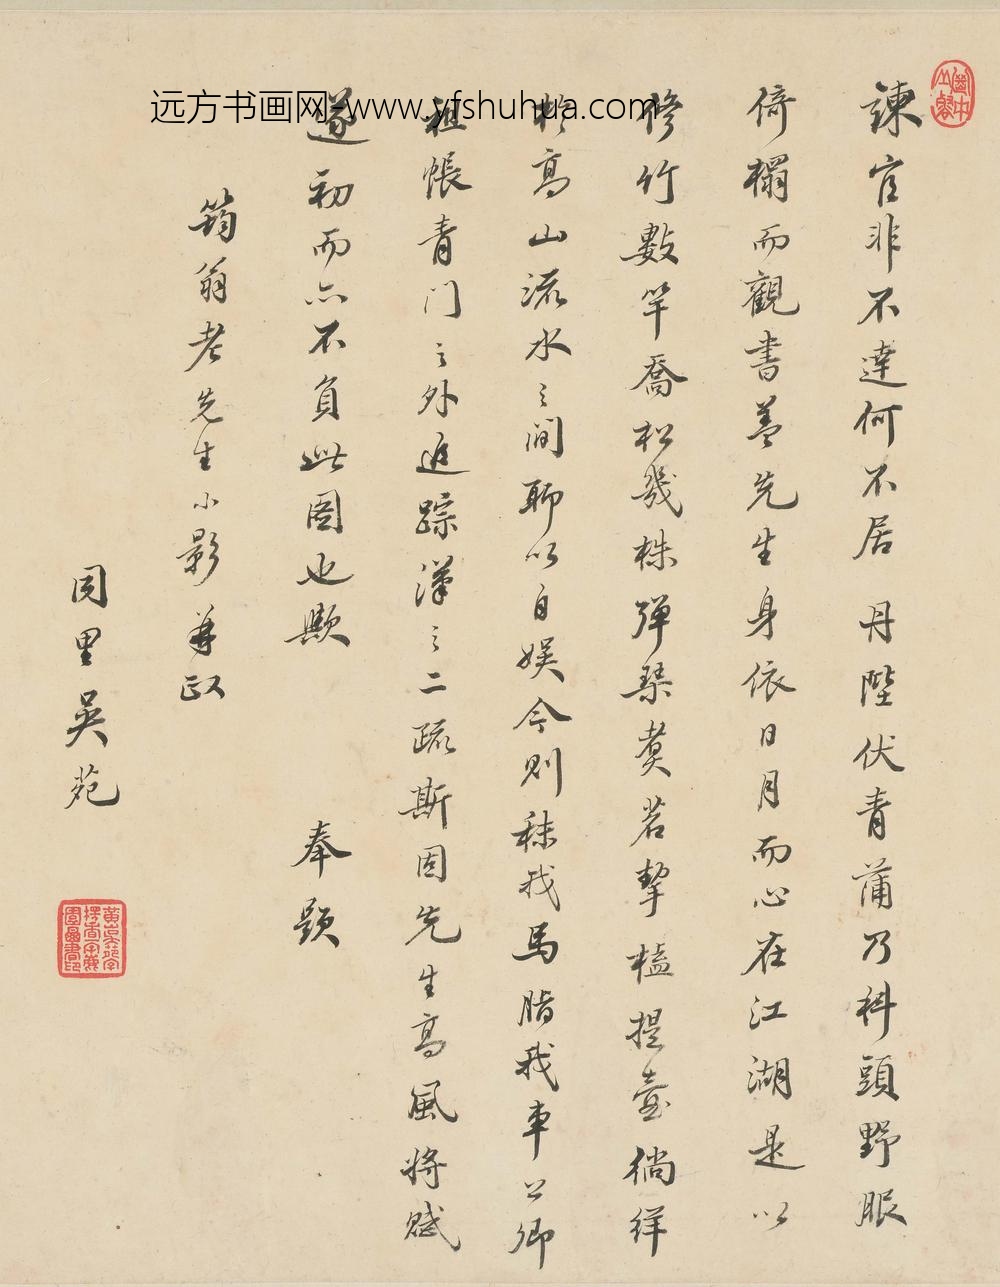 远方书画网-www.yfshuhua.com
諫官非不達何不居丹陛伏青蒲乃科頭野服
倚榻而觀書蓋先生身依日月而心在江湖是以
修竹數竿喬松幾株彈琴煑茗挈榼提壺徜徉
於高山流水之間聊以自娛今則秣我馬脂我車公卿
祖帳青門之外追踪漢之二疏斯固先生高風將賦
遂初而亦不負此圖也歟 奉題
筠翁老先生小影並正
同里吳苑